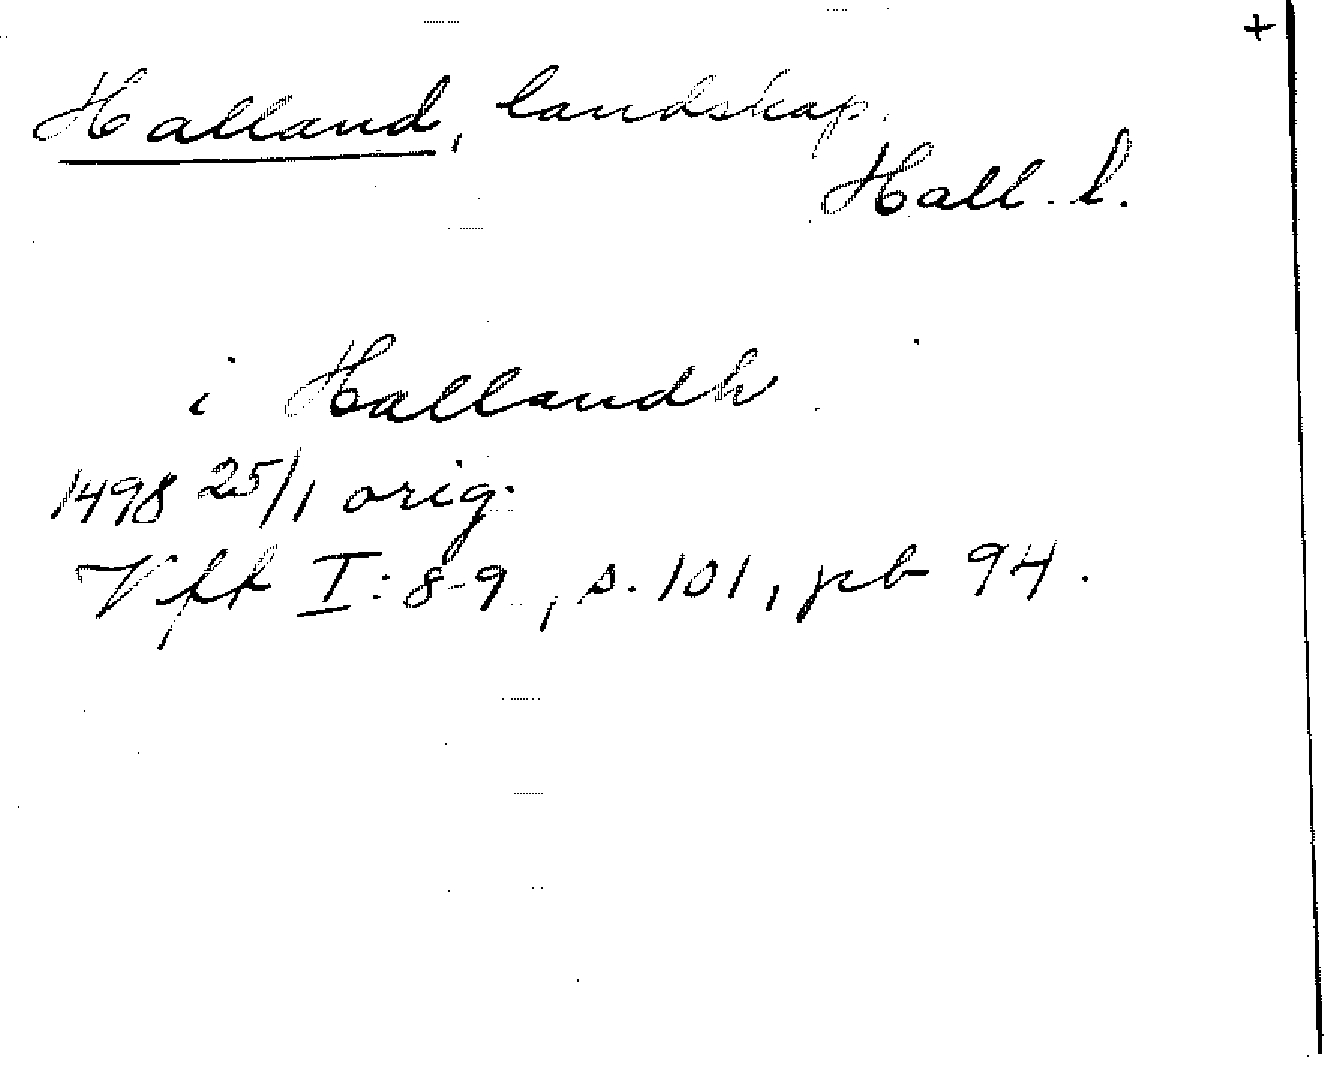 +
Halland, landskap.
Hall. l.
i Hallandh
1498 25/1 orig.
Vff I: 8-9, s. 101, pb 94.